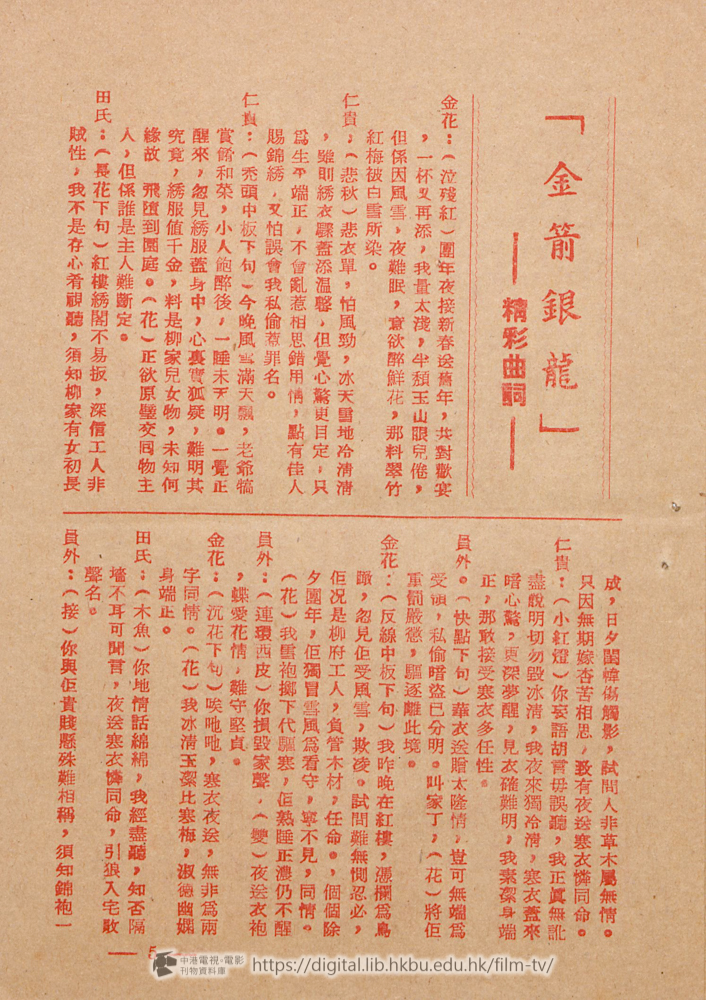 「金箭銀龍」
——精彩曲詞——
金花：（泣殘紅）團年夜接新春送舊年，共對歡宴
，一杯又再添，我量太淺，半頹玉山眼兒倦，
但係因風雪，夜難眠，意欲醉鮮花，那料翠竹
紅梅被白雪所染。
仁貴：（悲秋）悲衣單，怕風勁，冰天雪地冷清清
，雖則綉衣驟蓋添溫馨，但覺心驚更目定，只
爲生平端正，不會亂惹相思錯用情，點有佳人
賜錦綉，又怕誤會我私偷蓋罪名。
仁貴：（禿頭中板下句）今晚風雪滿天飄，老爺犒
賞餚和榮，小人飽醉後，一睡未天明。一覺正
醒來，忽見綉服蓋身中，心裏實狐疑，難明其
究竟，綉服值千金，料是柳家兒女物，未知何
緣故　飛墮到園庭。（花）正欲原璧交囘物主
人，但係誰是主人難斷定。
田氏：（長花下句）紅樓綉閣不易扳，深信工人非
賊性，我不是存心肴視聽，須知柳家有女初長
成，日夕閨幃傷觸影，試問人非草木屬無情。
只因無期嫁杏苦相思，致有夜送寒衣憐同命。
仁貴：（小紅燈）你妄語胡言毋誤聽，我正眞無訛
盡說明切勿毀冰清，我夜來獨冷清，寒衣蓋來
暗心驚，更深夢醒，見衣確難明，我素潔身端
正，那敢接受寒衣多任性。
員外。（快點下句）華衣送贈太隆情，豈可無端爲
受領，私偷暗盜已分明。叫家丁，（花）將佢
重罰嚴懲，驅逐離此境。
金花：（反線中板下句）我昨晚在紅樓，憑欄爲鳥
瞓，忽見佢受風雪，欺凌。試問難無惻忍心，
佢况是柳府工人，負管木材，任命。個個除
夕團年，佢獨冒雪風爲看守，寧不見，同情。
（花）我雪袍擲下代驅寒，佢熟睡正濃仍不醒
員外：（連環西皮）你損毀家聲，（雙）夜送衣袍
，蝶愛花情，難守堅貞。
金花：（沉花下句）唉吔吔，寒衣夜送，無非爲兩
字同情。（花）我冰清玉潔比寒梅，淑德幽嫻
身端正。
田氏：（木魚）你地情話綿綿，我經盡聽，知否隔
墻不耳可聞言，夜送寒衣憐同命，引狼入宅敗
聲名。
員外：（接）你與佢貴賤懸殊難相稱，須知錦袍一
— 5
中港電視・電影
刊物資料庫
https://digital.lib.hkbu.edu.hk/film-tv/